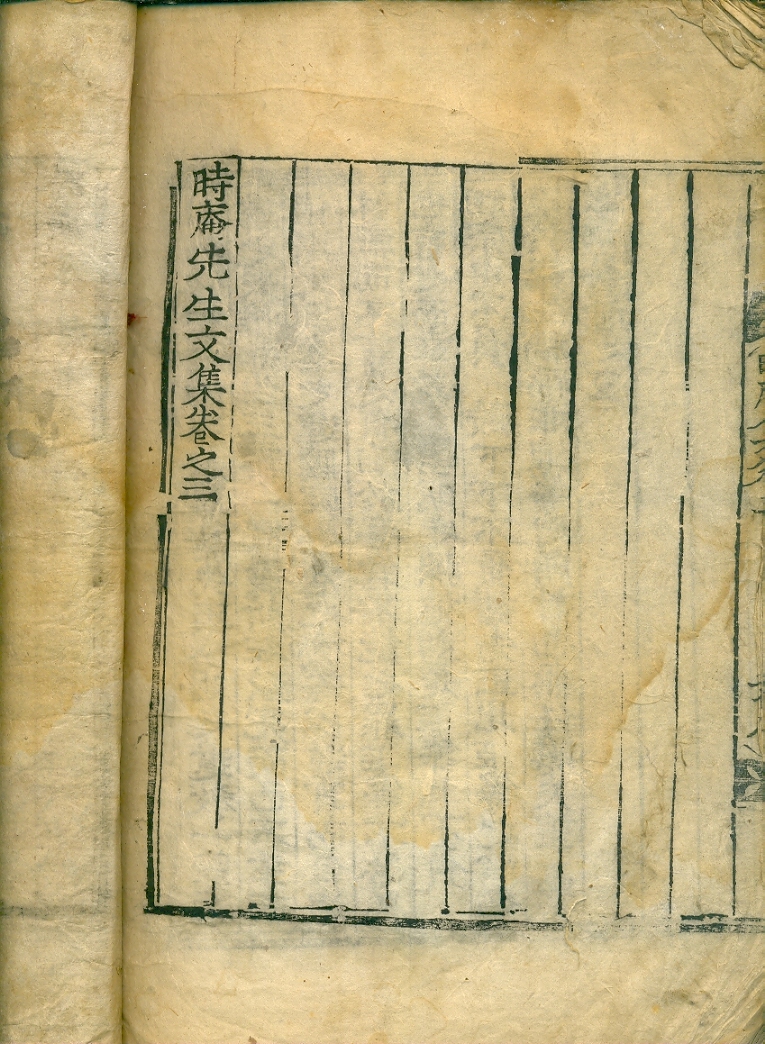 時庵先生文集卷之三